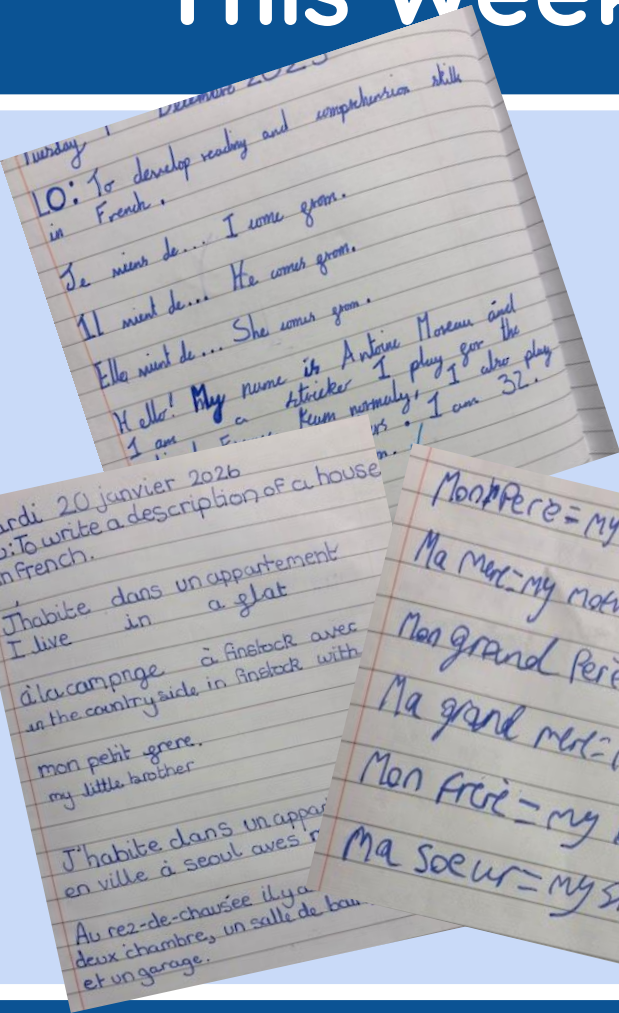 This Week
Tuesday Decembre 2025
LO: To develop reading and comprehension skills
in French.
Je viens de... I come from.
Il vient de... He comes from.
Elle vient de... She comes from.
Hello! My name is Antoine Moreau and
I am a stricker I play for the
team normaly, I also play
I am 32.
ardi 20 janvier 2026
o: To write a description of a house
n french.
J'habite dans un appartement
I live in a flat
à la campnge à finstock avec
in the countryside in finstock with
mon petit frere.
my little brother
J'habite dans un appar
en ville à seoul aves
Au rez-de-chausée il y a
deux chambre, un salle de bai
et un garage.
Mon Perè = my
Ma merè = my mot
Mon grand Perè
Ma grand merè =
Mon frerè = my
Ma soeur = my s